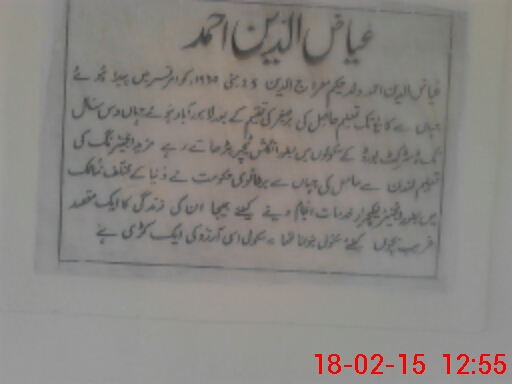 غیاض الدین احمد
غیاض الدین احمد ولد حکیم معراج الدین 25 مئی کو امرتسر میں پیدا ہوئے
جہاں سے تک تعلیم حاصل کی برصغیر کی تقسیم کے بعد لاہور آباد ہوئے جہاں دس سال
تک ڈسٹرکٹ بورڈ کے سکولوں میں بطور انگلش ٹیچر پڑھاتے رہے مزید انجینئرنگ کی
تعلیم لندن سے حاصل کی جہاں سے برطانوی حکومت نے دنیا کے مختلف ممالک
میں بطور انجینئر لیکچرار خدمات انجام دینے کیلئے بھیجا ان کی زندگی کا ایک مقصد
غریب بچوں کیلئے سکول بنانا تھا یہ سکول اسی آرزو کی ایک کڑی ہے
18-02-15 12:55